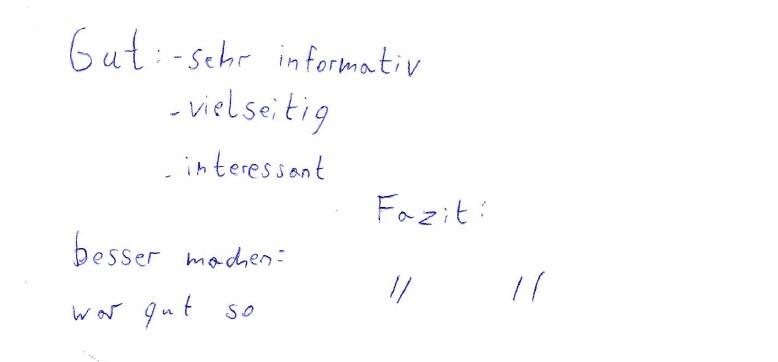 Gut: - sehr informativ
- vielseitig
- interessant
Fazit:
besser machen:
war gut so
" "